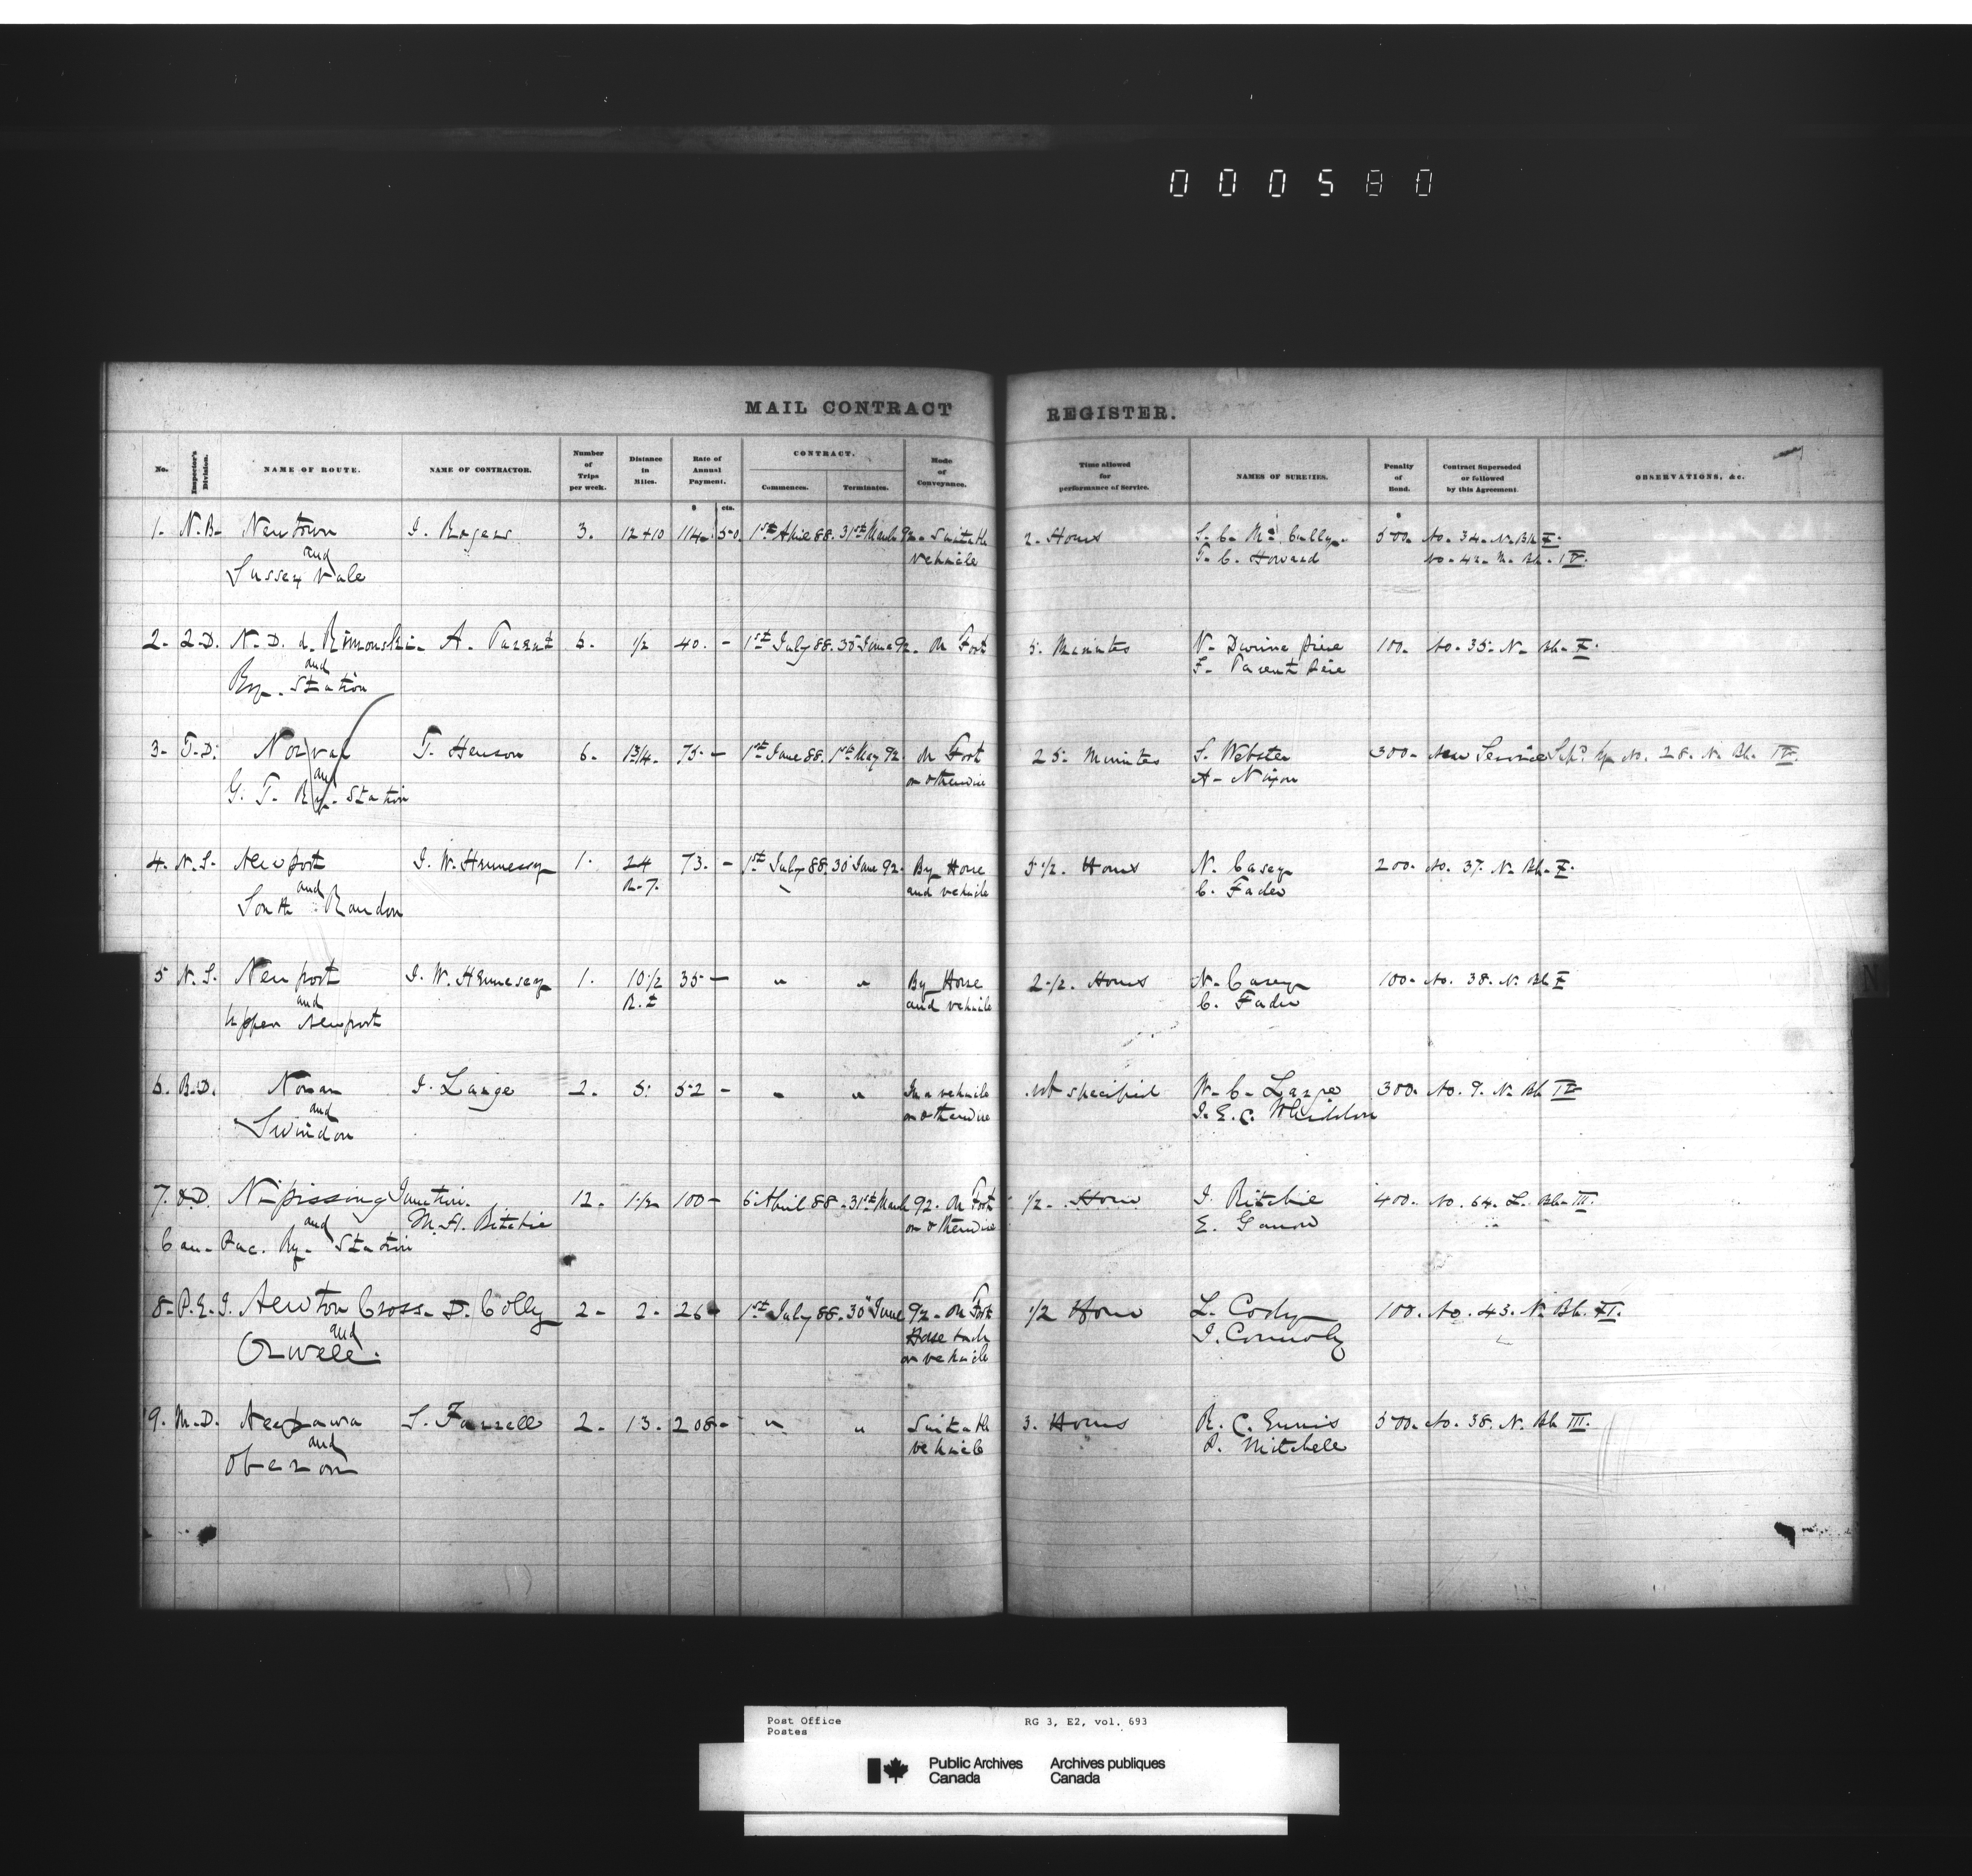 000580
MAIL CONTRACT REGISTER.
No. Inspector's Division. NAME OF ROUTE. NAME OF CONTRACTOR. Number of Trips per week. Distance in Miles. Rate of Annual Payment. CONTRACT. Commences. Terminates. Mode of Conveyance. Time allowed for performance of Service. NAMES OF SURETIES. Penalty of Bond. Contract Superseded or followed by this Agreement. OBSERVATIONS, &c.
$ cts.
1. N.B. Newtown I. Rogers 3. 12+10 114. 50 1st April 88. 31st March 92. Suitable 2. Hours S. C. McCully 500. No. 34. N. Bk
and vehicle T. C. Howard No. 42. N. Bk. IV.
Sussex Vale
2. 2.D. N.D. d. Rimouski A. Parent 6. 1/2 40. - 1st July 88. 30 June 92. On Foot 5. Minutes 100. No. 35. N. Bk.
and F. Parent Père
Ry. Station
3. T.D. Norval T. Henson 6. 1 3/4. 75 - 1st June 88. 1st May 92. On Foot 25. Minutes S. Webster 300. New Service by No. 28. N. Bk.
and or otherwise A. Nixon
G. T. Ry. Station
4. N.S. Newport I. W. Hennessey 1. 24 73. - 1st July 88. 30 June 92. By Horse 5 1/2. Hours N. Casey 200. No. 37. N. Bk.
and R.T. and vehicle C. Fader
South Rawdon
5 N.S. Newport I. W. Hennesey 1. 10 1/2 35 - " " By Horse 2 1/2. Hours N. Casey 100. No. 38. N. Bk
and R.t and vehicle C. Fader
Upper Newport
6. B.D. I. Laize 2. 5. 52 - " " In a vehicle not specified W. C. 300. No. 9. N. Bk
and or otherwise I. E. C. Whiddon
Swindon
7. O.D. Nipissing Junction. 12. 1 1/2 100 - 6 April 88. 31st March 92. On Foot 1/2. Hour I. Ritchie 400. No. 64. L. Bk. III.
and M. A. Ritchie or otherwise E.
Can. Pac. Ry. Station
8. P.E.I. Newton Cross D. Colly 2. 2. 26 - 1st July 88. 30 June 92. On Foot 1/2 Hour L. Cody 100. No. 43. N. Bk.
and Horse back I. Connoly
Orwell. or vehicle
9. M.D. Neepawa S. Farrell 2. 13. 208 - " " Suitable 3. Hours R. C. Ennis 500. No. 38. N. Bk III.
and vehicle P. Mitchell
Oberon
N
Post Office RG 3, E2, vol. 693
Postes
Public Archives Archives publiques
Canada Canada